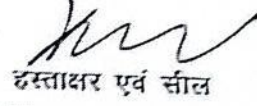 हस्ताक्षर एवं सील